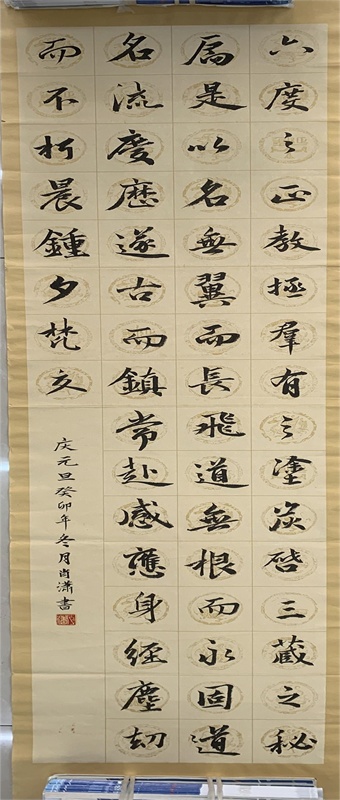 六度之正教拯羣有之塗炭啓三藏之秘
扃是以名無翼而長飛道無根而永固道
名流慶歷遂古而鎮常赴感應身經塵劫
而不朽晨鍾夕梵交
庆元旦癸卯年冬月肖潇書